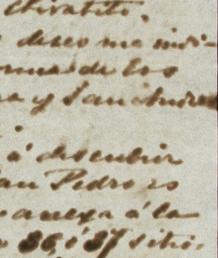 chivatito.
deseo me indi-
de los
y San Andres
á descubrir
an Pedro es
anexa á la
36, ó 37 sitio.